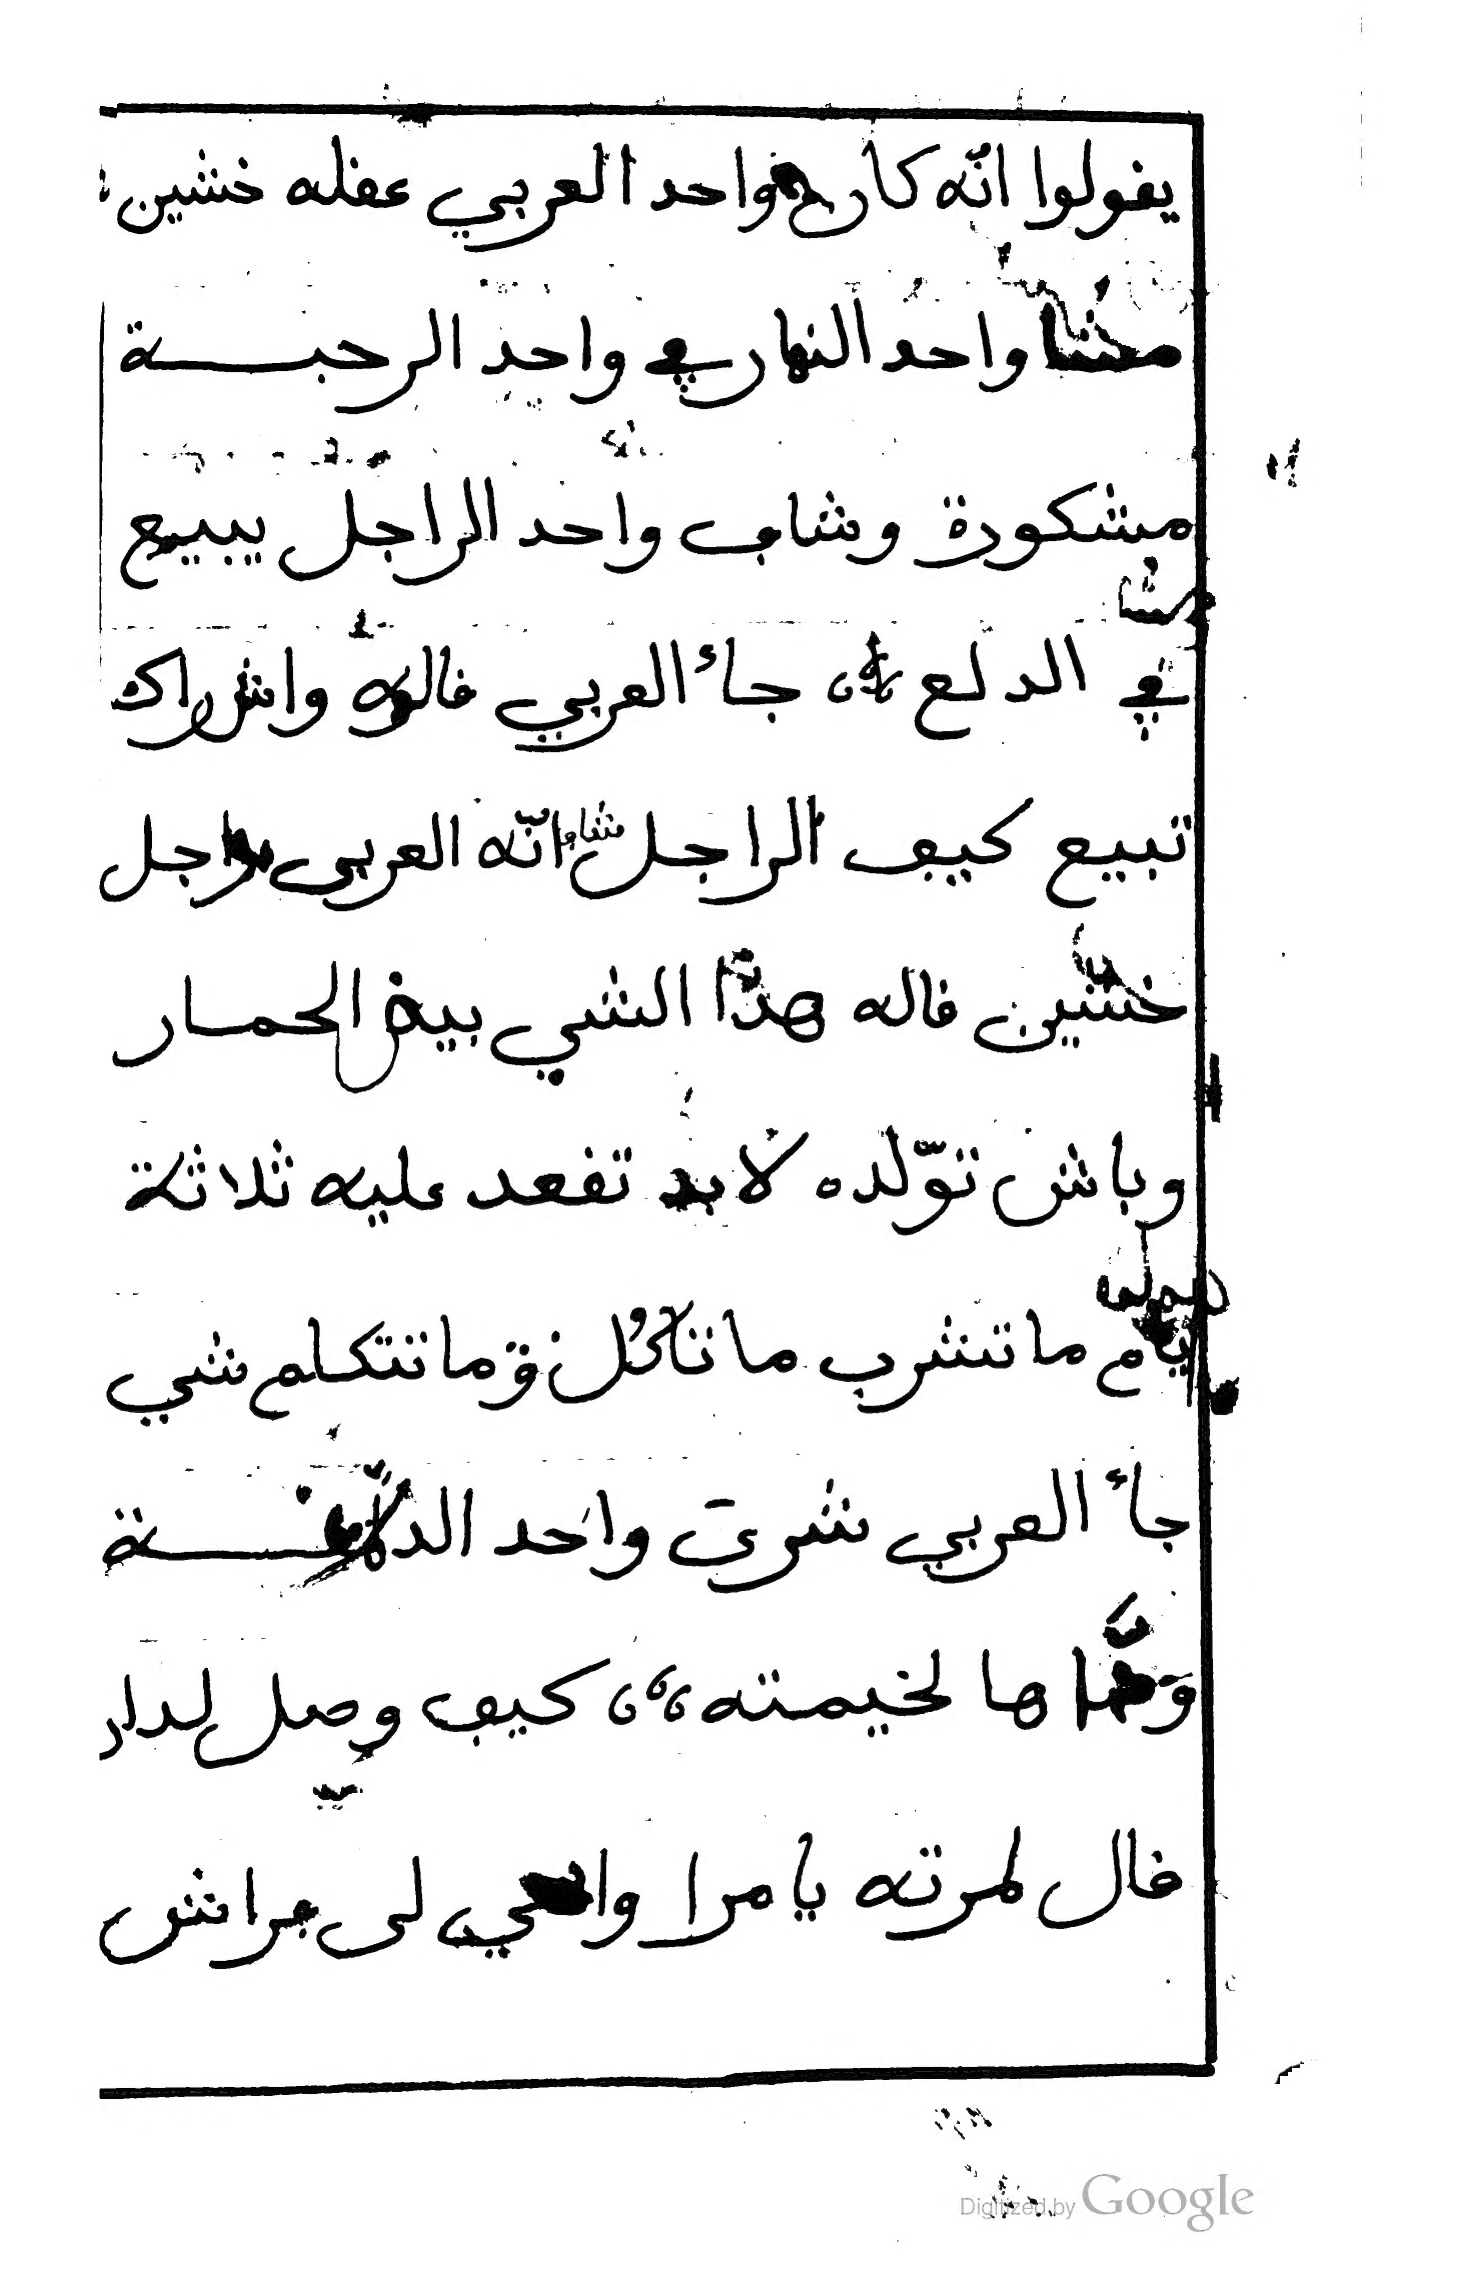 يقولوا انّه كان واحد العربي عقله خشين
مشا واحد النهار في واحد الرحبة
مشكورة وشاف واحد الراجل يبيع
في الدلع جاء العربي قالوله واش راك
تبيع كيف الراجل شاف انّه العربي راجل
خشين قاله هذا الشي بيض الحمار
وباش تولّده لابد تقعد عليه ثلاثة
يام ما تشرب ما تأكُل وما تتكلم شي
جاء العربي شرى واحد الدلاعة
لخيمته كيف وصل لدار
قال لمرته يا مرا لي فراش
Digitized by Google